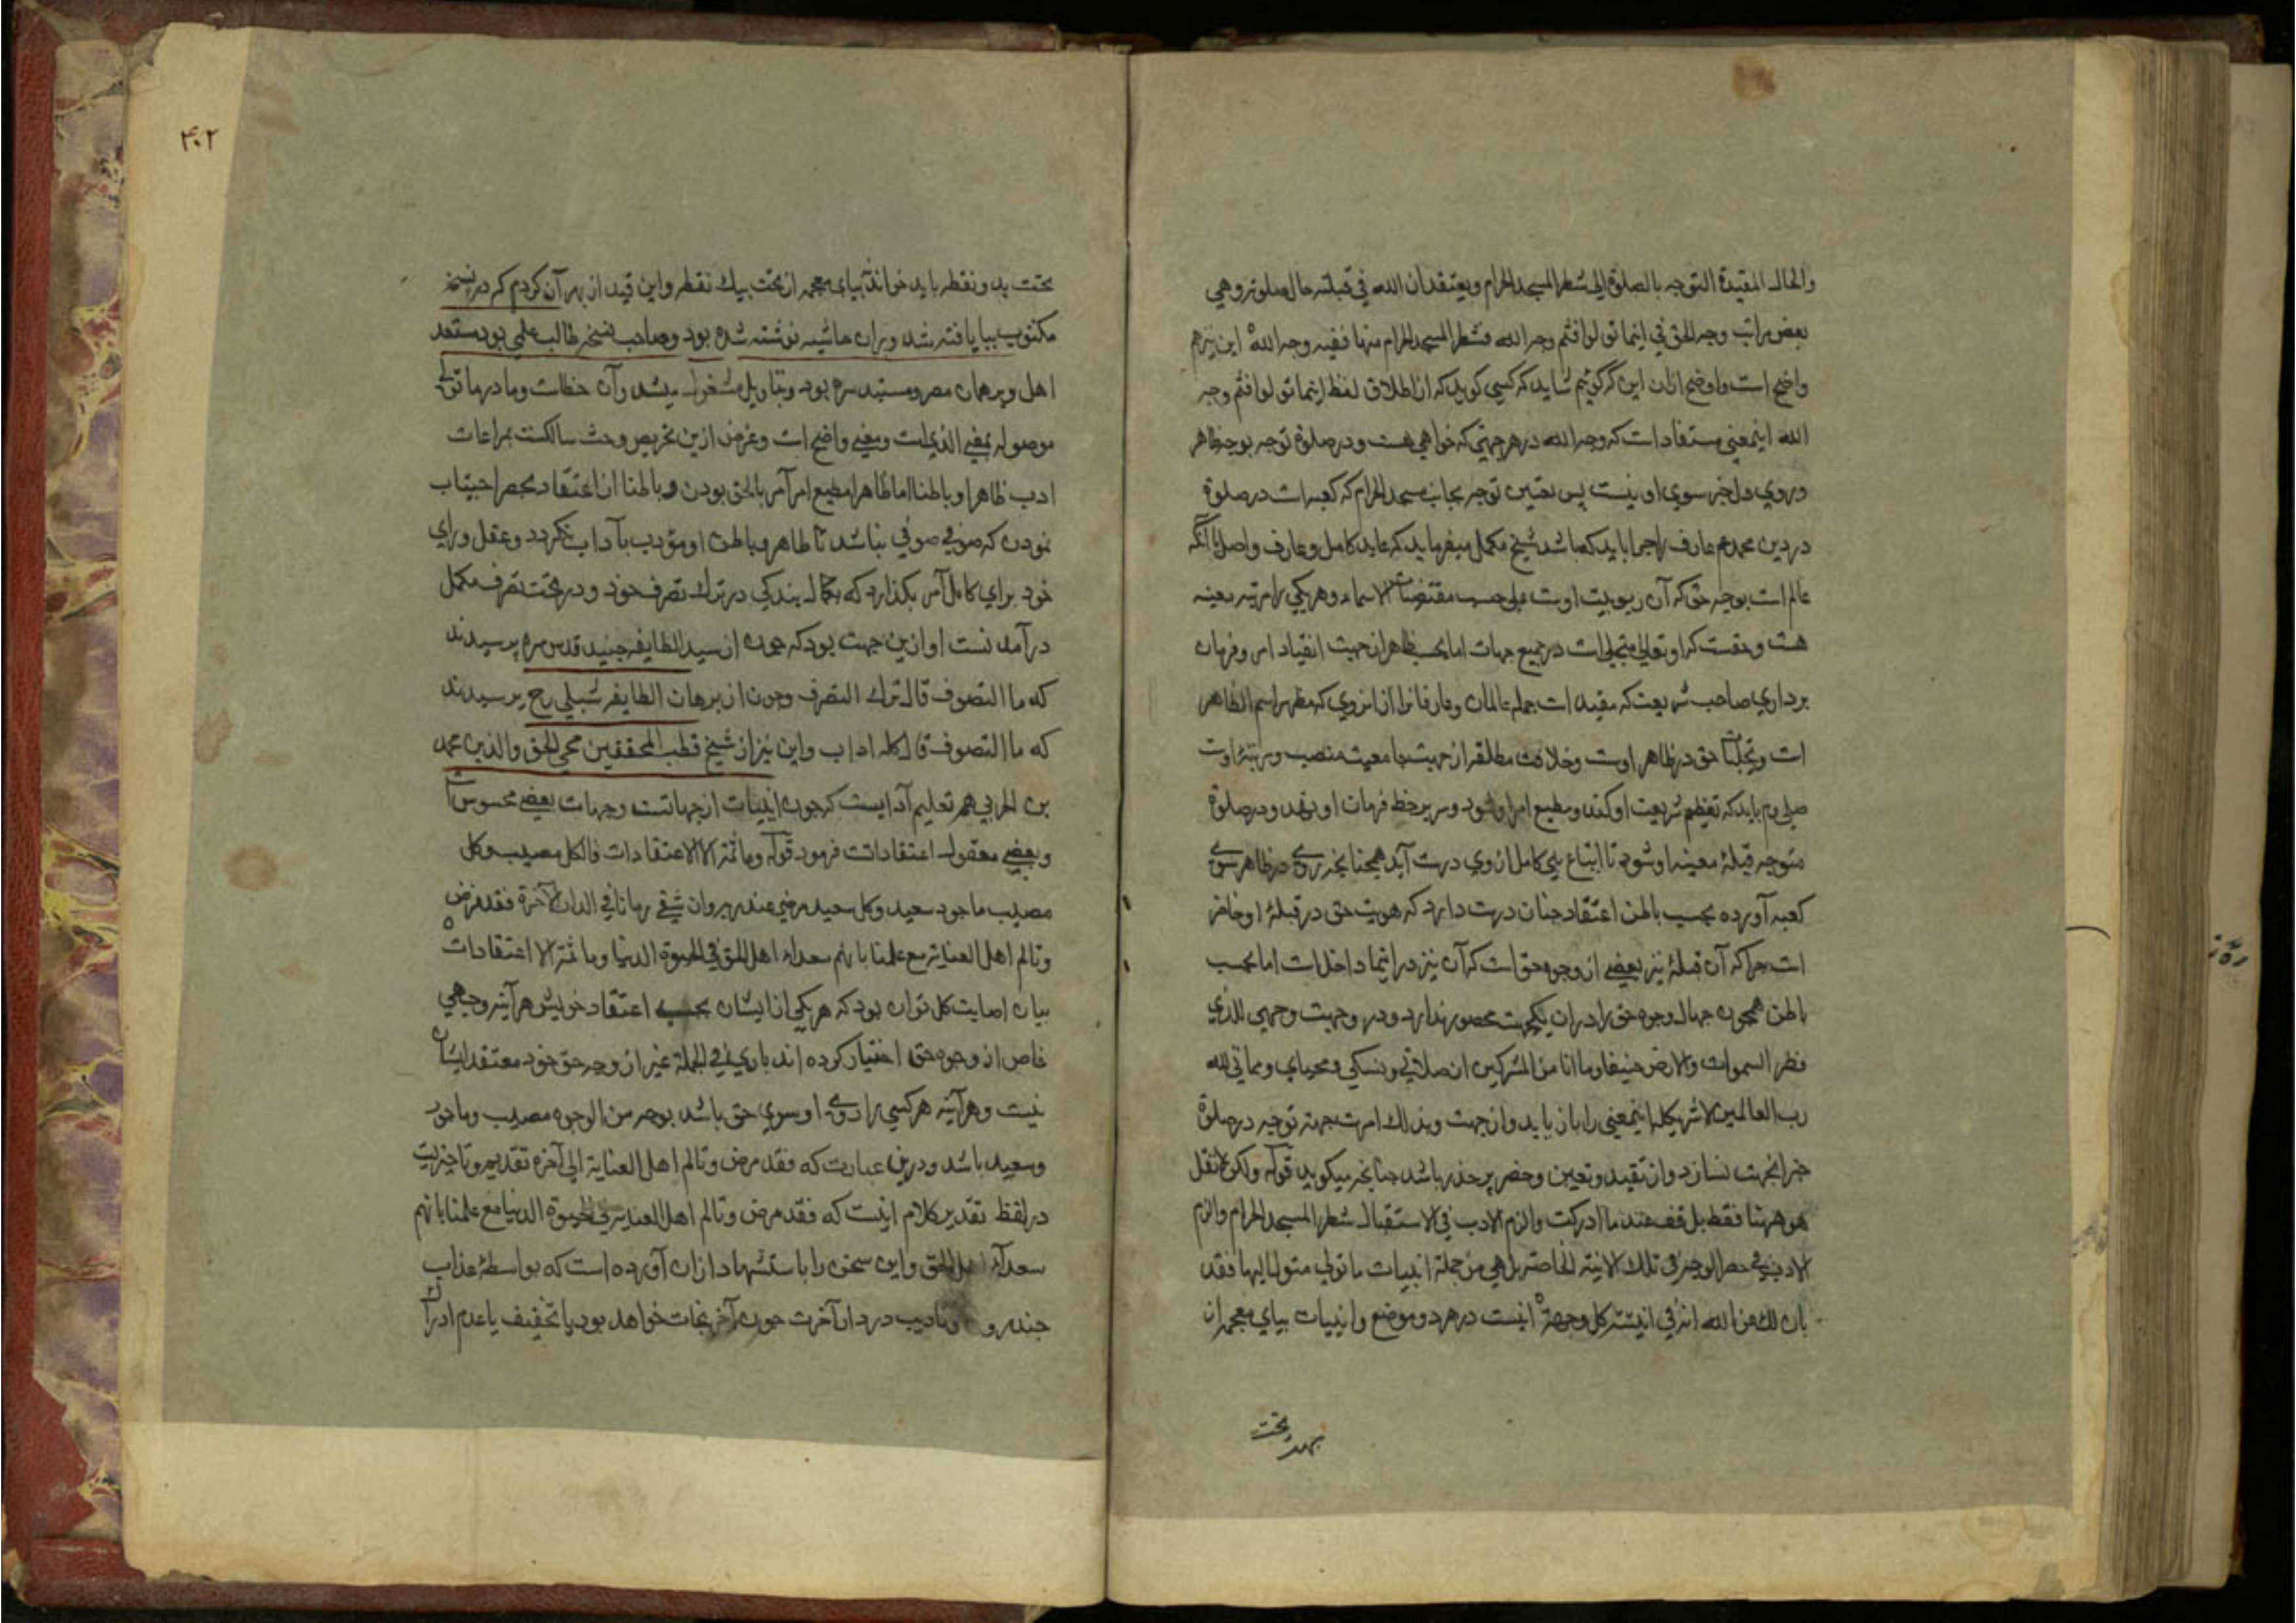 والحال المقیدة التوجه بالصلوة الی شطر المسجد الحرام ویعتقد ان الله فی قبلته حال صلوته وهی
بعض مراتب وجه الحق فی اینما تولوا فثم وجه الله فشطر المسجد الحرام منها ففیه وجه الله این نیز هم
واضح است واوضح ازان این کر کوئیم شاید که کسی کوید که از اطلاق لفظ اینما تولوا فثم وجه
الله اینمعنی مستفاد است که وجه الله در هر جهتی که خواهی هست ودر صلوة توجه بوجه ظاهر
وروی دل جز سوی او نیست پس تعیّن توجه بجانب مسجد الحرام که کعبه است در صلوة
در دین محمدم عارف را چرا باید که باشد شیخ مکمل میفرماید که عابد کامل وعارف واصل با آنکه
عالم است بوجه حق که آن ربوبیت اوست علی حسب مقتضیات الاسماء وهر یکی را مرتبه معینه
هست وحقست که او تعالی متجلی است در جمیع جهات اما بحسب ظاهر از جهت انقیاد امر وفرمان
برداری صاحب شریعت که مقید است جمله عالمان وعارفانرا از انروی که مظهر اسم الظاهر
است وتجلیات حق در ظاهر اوست وخلافت مطلقه از جهت جامعیت منصب ومرتبۀ اوست
صلی وم باید که تعظیم شریعت او کند ومطیع امر او شود وسر بر خط فرمان او نهد ودر صلوة
متوجه قبلۀ معینه او شود تا اتباع نبی کامل ازوی درست آید همچنانچه روی در ظاهر سوی
کعبه آورده بحسب باطن اعتقاد چنان درست دارد که هویت حق در قبلۀ او حاضر
است چرا که آن قبلۀ نیز بعضی از وجوه حق است که آن نیز در اینما داخل است اما بحسب
باطن همچون جهال وجوه حق را دران یکجهت محصور ندارد ودر وجهت وجهی للذی
فطر السموات والارض حنیفا وما انا من المشرکین ان صلاتی ونسکی ومحیای ومماتی لله
رب العالمین لا شریک له اینمعنی را باز یابد وان جهت وبذلک امرت جهته توجه در صلوة
جز انجهت نسازد وان تقید وتعین وحصر پر حذر باشد چنانچه میکوید قوله ولکن لا تقل
هو ههنا فقط بل قف عند ما ادرکت والزم الادب فی الاستقبال شطر المسجد الحرام والزم
الادب فی حصر الوجه فی تلک الاینیة الخاصة بل هی من جملة اینیات ما تولی متول الیها فقد
بان لک عن الله انه فی اینیة کل وجهة اینست در هر دو موضع واینیات بیای معجمه از
تحت بدو نقطه
۴۰۲
تحت بدو نقطه باید خواند نبیای معجمه از تحت بیک نقطه واین قید از بهر آن کردم که در نسخۀ
مکتوب ببا یافته شد وبران حاشیه نوشته شده بود وصاحب نسخه طالب علمی بود مستعد
اهل وبر همان مصر ومستبد سره بود وبتاویل مشغول میشد وآن خطاست وما در ما تولی
موصوله بمعنی الذی است ومعنی واضح است وغرض ازین تحریص وحث سالکست بمراعات
ادب ظاهرا وباطنا اما ظاهرا مطیع امر آمر بالحق بودن وباطنا از اعتقاد بحصر اجتناب
نمودن که صوفی صوفی نباشد تا ظاهر وباطن او مؤدب بآداب نکردد وعقل ورای
خود برای کامل آمر بکذارد که کمال بندکی در ترک تصرف خود ودر تحت تصرف مکمل
درآمدنست او ازین جهت بود که چون از سید الطایفه جنید قدس سره پرسیدند
که ما التصوف قال ترک التصرف وچون از برهان الطایفه شبلی رح پرسیدند
که ما التصوف قال کله اداب واین نیز از شیخ قطب المحققین محی الحق والدین محمد
بن العربی هم تعلیم آدابست که چون اینیات از جهاتست وجهات بعضی محسوس است
وبعضی معقول اعتقاداتست فرمود قوله وما ثمة الا الاعتقادات فالکل مصیب وکل
مصیب ماجور سعید وکل سعید مرضی عند ربه وان شقی زمانا فی الدار الآخرة فقد مرض
وتالم اهل العنایة مع علمنا بانهم سعداء اهل الحق فی الحیوة الدنیا وما ثمة الا اعتقادات
بیان اصابت کل توان بود که هر یکی از ایشان بحسب اعتقاد خویش هر آینه وجهی
خاص از وجوه حق اختیار کرده اند باری فی الجملة غیر از وجه حق خود معتقد ایشان
نیست وهر آینه هر کسی را روی او سوی حق باشد بوجه من الوجوه مصیب وماجور
وسعید باشد ودرین عبارت که فقد مرض وتالم اهل العنایة الی آخره تقدیم وتاخیریست
در لفظ تقدیر کلام اینست که فقد مرض وتالم اهل العنایة فی الحیوة الدنیا مع علمنا بانهم
سعداء اهل الحق واین سخن را باستشهاد ازان آورده است که بواسطۀ عذاب
چند رو وتادیب در دار آخرت چون آخر نجات خواهد بود یا تخفیف یا عدم ادراک